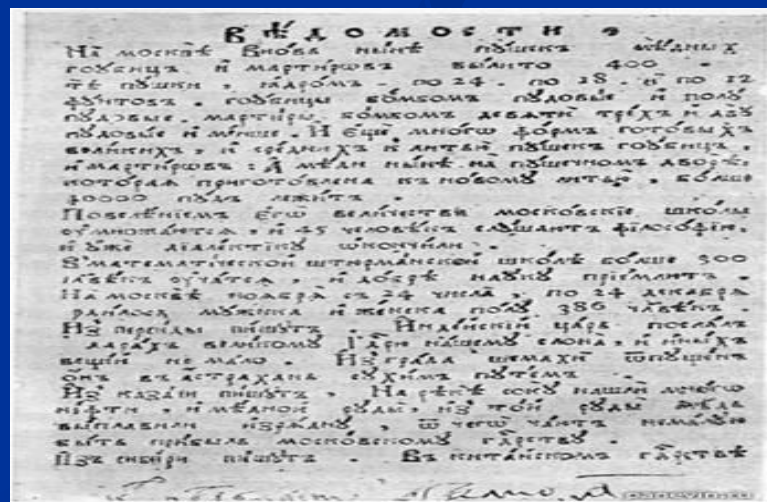 ВѢДОМОСТИ
На москвѣ вновь нынѣ пушекъ мѣдныхъ
гоубицъ и мартировъ вылито 400 .
тѣ пушки , ядромъ . по 24 . по 18 . и по 12
фунтовъ . гоубицы бомбомъ пудовые и полу
пудовые . мартиры бомбомъ девяти трехъ и двух
пудовые и менше . И еще много формъ готовыхъ
великихъ , и среднихъ и литьи пушекъ гоубицъ .
и мартировъ : А мѣди нынѣ на пушечномъ дворѣ ,
которая приготовлена къ новому литью . болше
40000 пудъ лежитъ .
Повелѣниемъ егѡ величества московские школы
умножаются , и 45 человѣкъ слушаютъ философию ,
и уже диалектику ѡкончили .
В математической штюрманской школѣ болше 300
члвѣкъ учатся , и добрѣ науку приемлютъ .
На москвѣ ноября съ 24 числа , по 24 декабря
родилося мужска и женска полу 386 члвѣкъ .
Из персиды пишутъ . Индѣйский царь послалъ
в дарахъ великому Гдрю нашему слона , и иныхъ
вещей не мало . Из града шемахи ѿпущенъ
онъ въ астрахань сухимъ путемъ .
Из казани пишутъ . На рѣкѣ соку нашли многѡ
нефти , и мѣдной руды , из той руды мѣдь
выплавили изрядну , ѿ чегѡ чаютъ немалую
быть прибыль московскому гдрству .
Изъ сибири пишутъ . Въ китайскомъ гдрствѣ